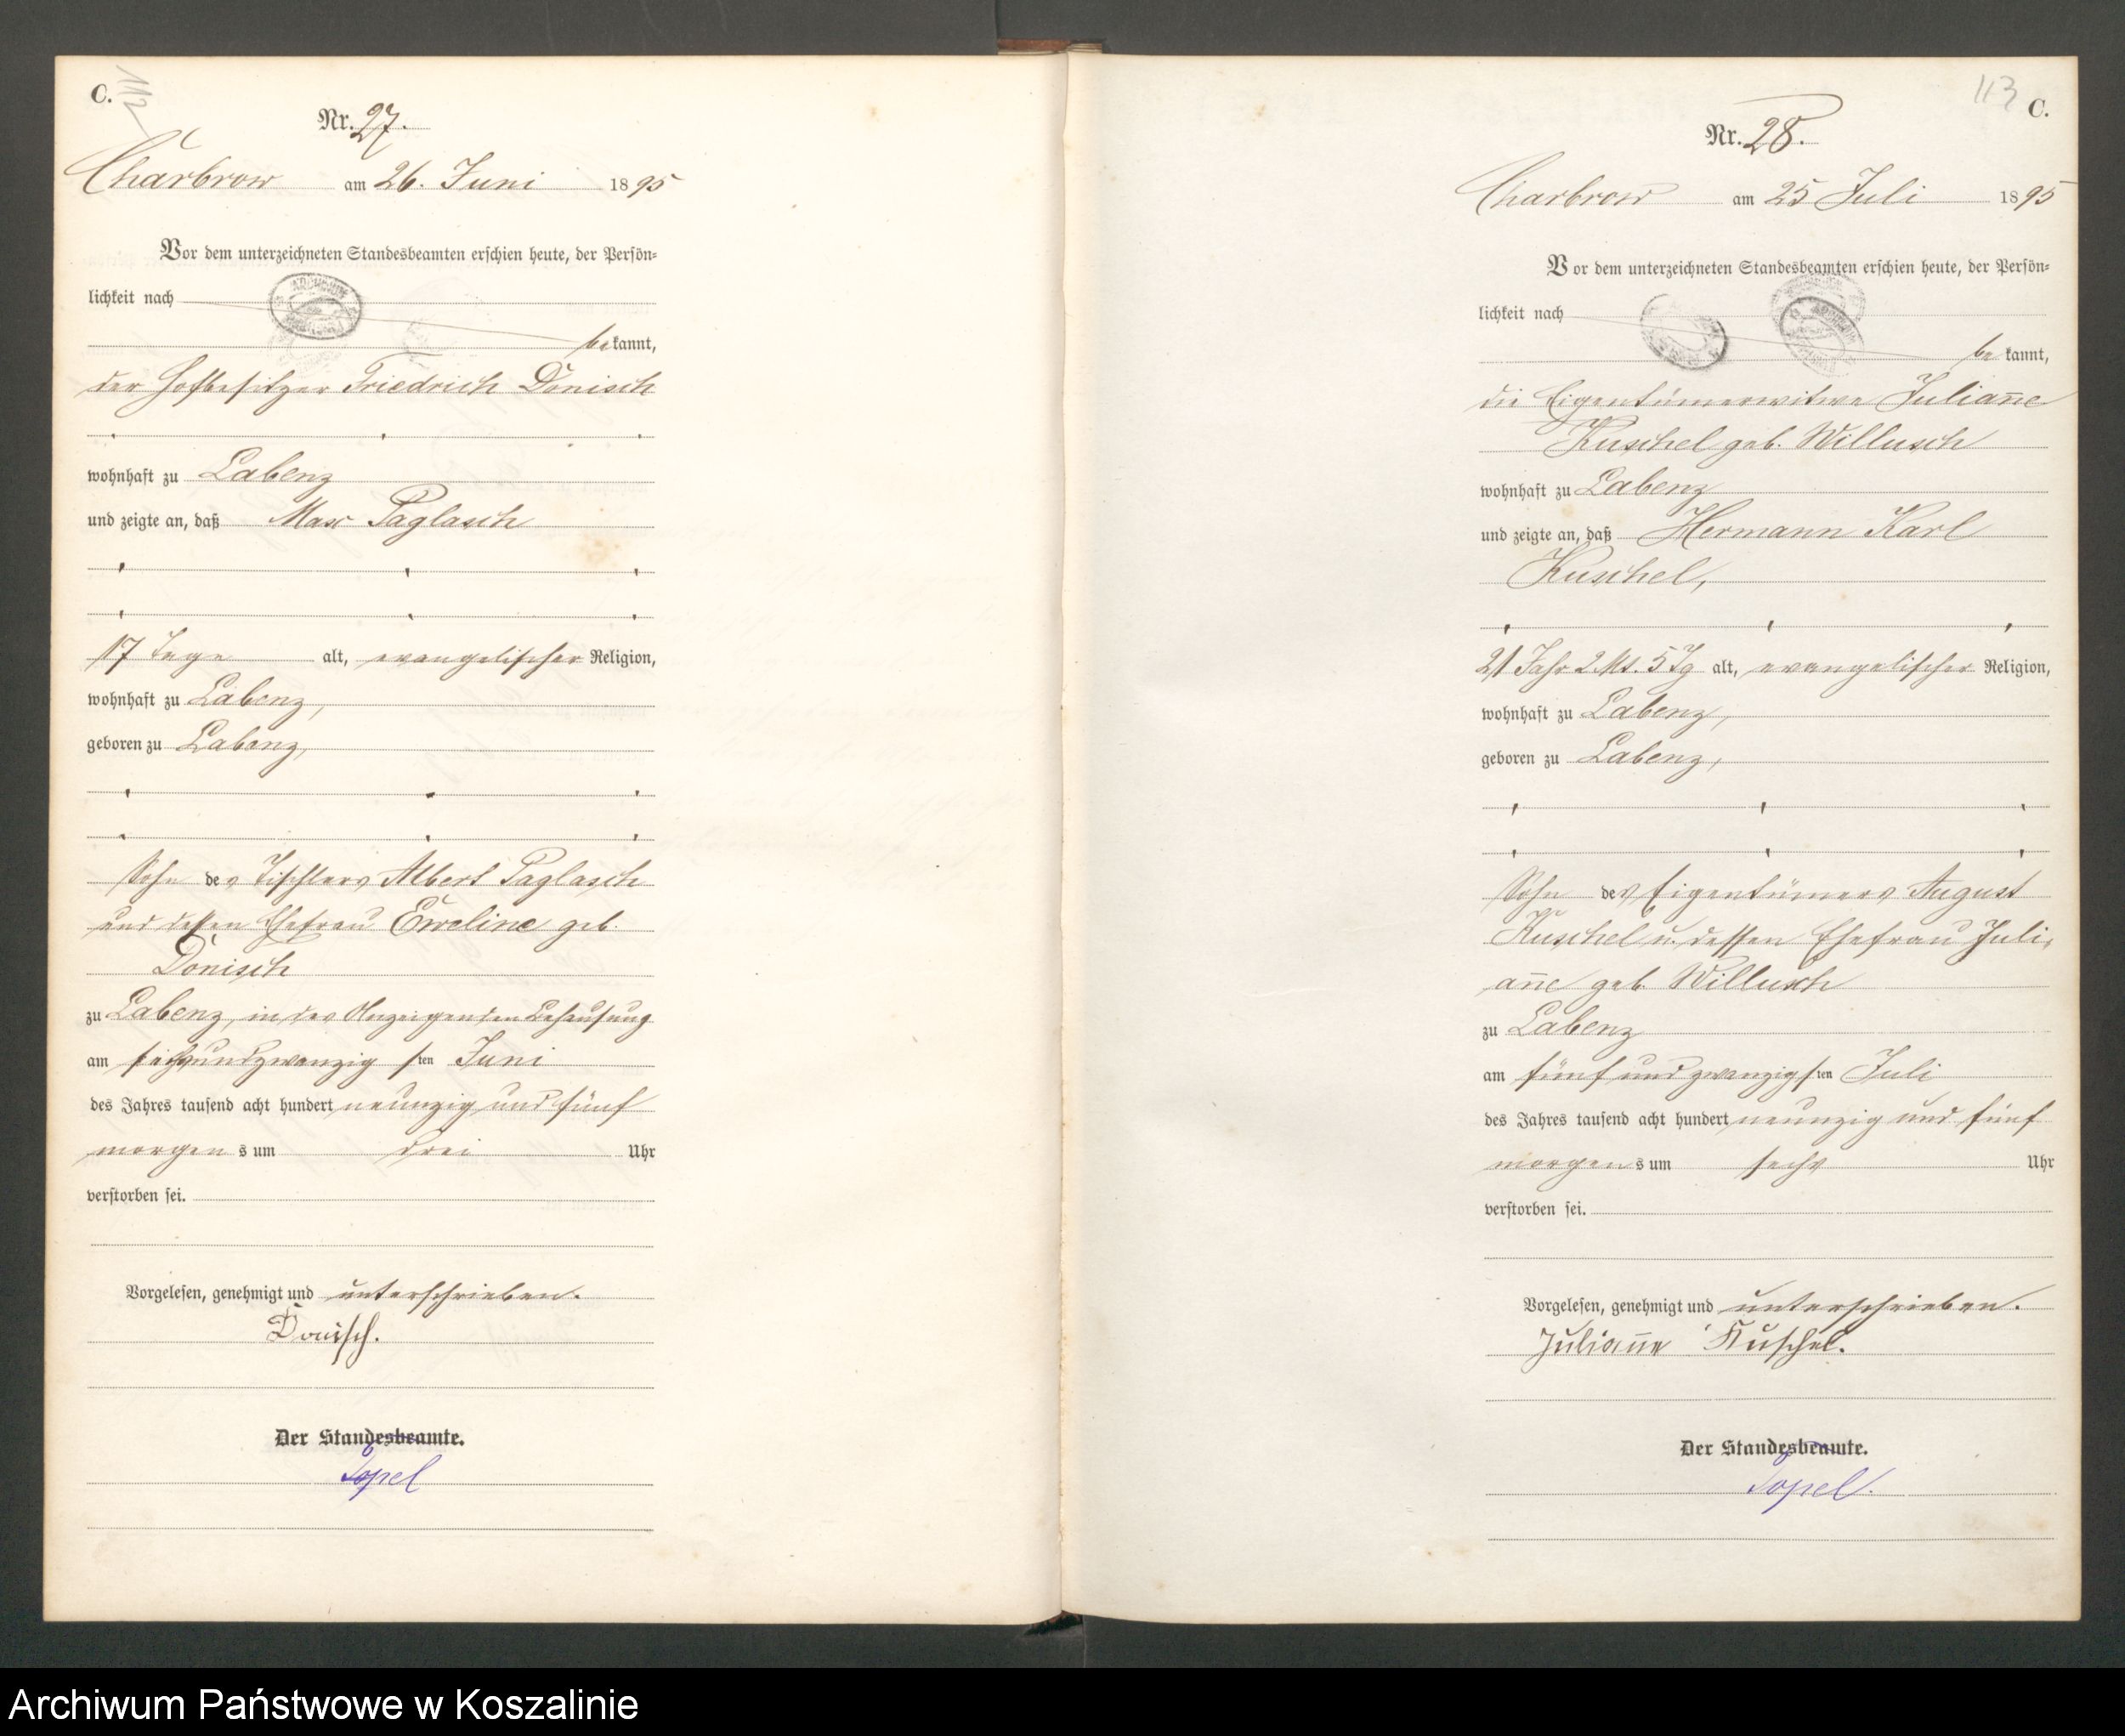 C.
112
Nr. 27.
Charbrow am 26. Juni 1895
Vor dem unterzeichneten Standesbeamten erschien heute, der Persön-
lichkeit nach
bekannt,
der Hofbesitzer Friedrich Donisch
wohnhaft zu Labenz
und zeigte an, daß Max Paglasch
17 Tage alt, evangelischer Religion,
wohnhaft zu Labenz,
geboren zu Labenz,
Sohn des Tischlers Albert Paglasch
und dessen Ehefrau Eweline geb.
Donisch
zu Labenz, in des Anzeigenden Behausung
am sechsundzwanzigsten Juni
des Jahres tausend acht hundert neunzig und fünf
morgens um drei Uhr
verstorben sei.
Vorgelesen, genehmigt und unterschrieben.
Donisch.
Der Standesbeamte.
Topel
113
C.
Nr. 28.
Charbrow am 25 Juli 1895
Vor dem unterzeichneten Standesbeamten erschien heute, der Persön-
lichkeit nach
bekannt,
die Eigentümerwitwe Julian̄e
Kuschel geb. Willusch
wohnhaft zu Labenz
und zeigte an, daß Hermann Karl
Kuschel,
21 Jahr 2 Mt. 5 Tg alt, evangelischer Religion,
wohnhaft zu Labenz,
geboren zu Labenz,
Sohn des Eigentümers August
Kuschel u. dessen Ehefrau Juli-
an̄e geb. Willusch
zu Labenz
am fünf und zwanzigsten Juli
des Jahres tausend acht hundert neunzig und fünf
morgens um sechs Uhr
verstorben sei.
Vorgelesen, genehmigt und unterschrieben.
Julian̄e Kuschel.
Der Standesbeamte.
Topel.
Archiwum Państwowe w Koszalinie